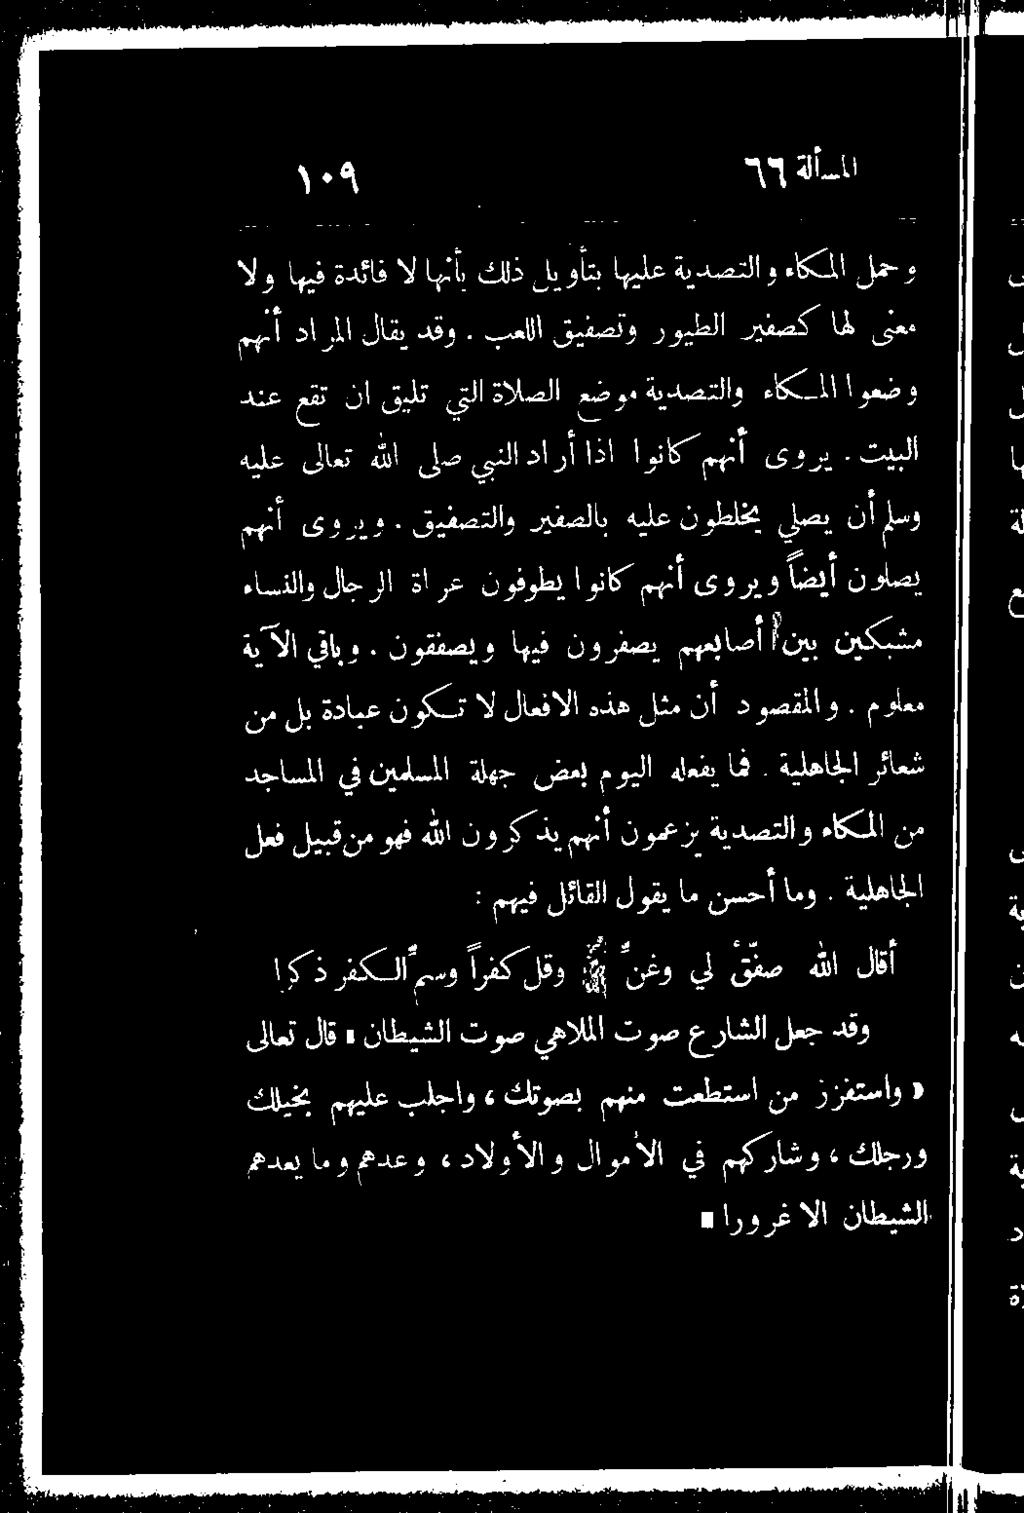 المسألة ٦٦ ١٠٩
وحمل المكاء والتصدية عليها بتأويل ذلك بأنها لا فائدة فيها ولا
معنى لها كصفير الطيور وتصفيق اللعب . وقد يقال المراد أنهم
وضعوا المكاء والتصدية موضع الصلاة التي تليق ان تقع عند
البيت . يروى أنهم كانوا اذا أراد النبي صلى الله تعالى عليه
وسلم أن يصلي يخلطون عليه بالصفير والتصفيق . ويروى أنهم
يصلون أيضاً ويروى أنهم كانوا يطوفون عراة الرجال والنساء
مشبكين بين أصابعهم يصفرون فيها ويصفقون . وباقي الآية
معلوم . والمقصود أن مثل هذه الافعال لا تكون عبادة بل من
شعائر الجاهلية . فما يفعله اليوم بعض جهلة المسلمين في المساجد
من المكاء والتصدية يزعمون أنهم يذكرون الله فهو من قبيل فعل
الجاهلية . وما أحسن ما يقول القائل فيهم :
أقال الله صفّق لي وغنّ وقل كفراً وسمّ الكفر ذكرا
وقد جعل الشارع صوت الملاهي صوت الشيطان • قال تعالى
« واستفزز من استطعت منهم بصوتك ، واجلب عليهم بخيلك
ورجلك ، وشاركهم في الأموال والأولاد ، وعدهم وما يعدهم
الشيطان الا غرورا »